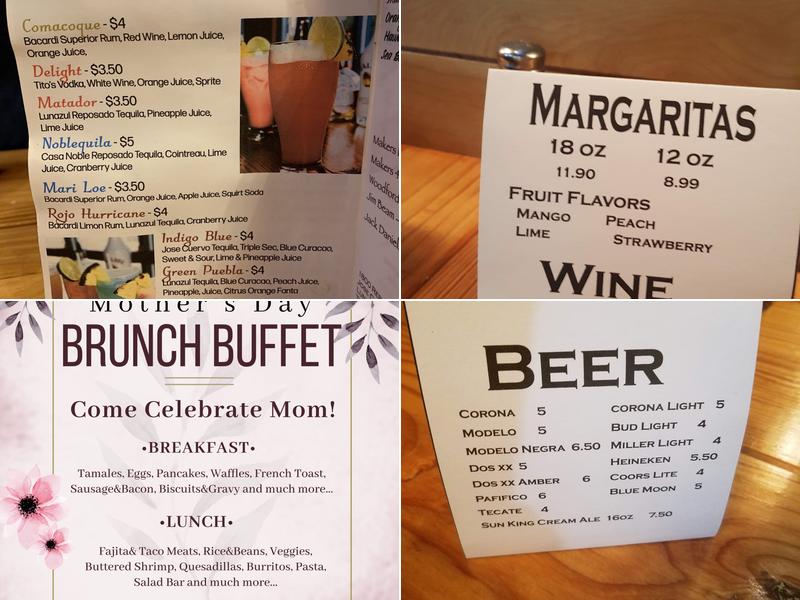 Comacoque - $4
Bacardi Superior Rum, Red Wine, Lemon Juice,
Orange Juice,
Delight - $3.50
Tito's Vodka, White Wine, Orange Juice, Sprite
Matador - $3.50
Lunazul Reposado Tequila, Pineapple Juice,
Lime Juice
Noblequila - $5
Casa Noble Reposado Tequila, Cointreau, Lime
Juice, Cranberry Juice
Mari Loe - $3.50
Bacardi Superior Rum, Orange Juice, Apple Juice, Squirt Soda
Rojo Hurricane - $4
Bacardi Limon Rum, Lunazul Tequila, Cranberry Juice
Indigo Blue - $4
Jose Cuervo Tequila, Triple Sec, Blue Curacao,
Sweet & Sour, Lime & Pineapple Juice
Green Puebla - $4
Lunazul Tequila, Blue Curacao, Peach Juice,
Pineapple Juice, Citrus Orange Fanta
Makers
Makers 4
Woodford
Jim Beam
Jack Daniel
MARGARITAS
18 OZ 12 OZ
11.90 8.99
FRUIT FLAVORS
MANGO PEACH
LIME STRAWBERRY
WINE
Mother's Day
BRUNCH BUFFET
Come Celebrate Mom!
•BREAKFAST•
Tamales, Eggs, Pancakes, Waffles, French Toast,
Sausage&Bacon, Biscuits&Gravy and much more...
•LUNCH•
Fajita& Taco Meats, Rice&Beans, Veggies,
Buttered Shrimp, Quesadillas, Burritos, Pasta,
Salad Bar and much more...
BEER
CORONA 5
MODELO 5
MODELO NEGRA 6.50
DOS XX 5
DOS XX AMBER 6
PAFIFICO 6
TECATE 4
SUN KING CREAM ALE 16OZ 7.50
CORONA LIGHT 5
BUD LIGHT 4
MILLER LIGHT 4
HEINEKEN 5.50
COORS LITE 4
BLUE MOON 5